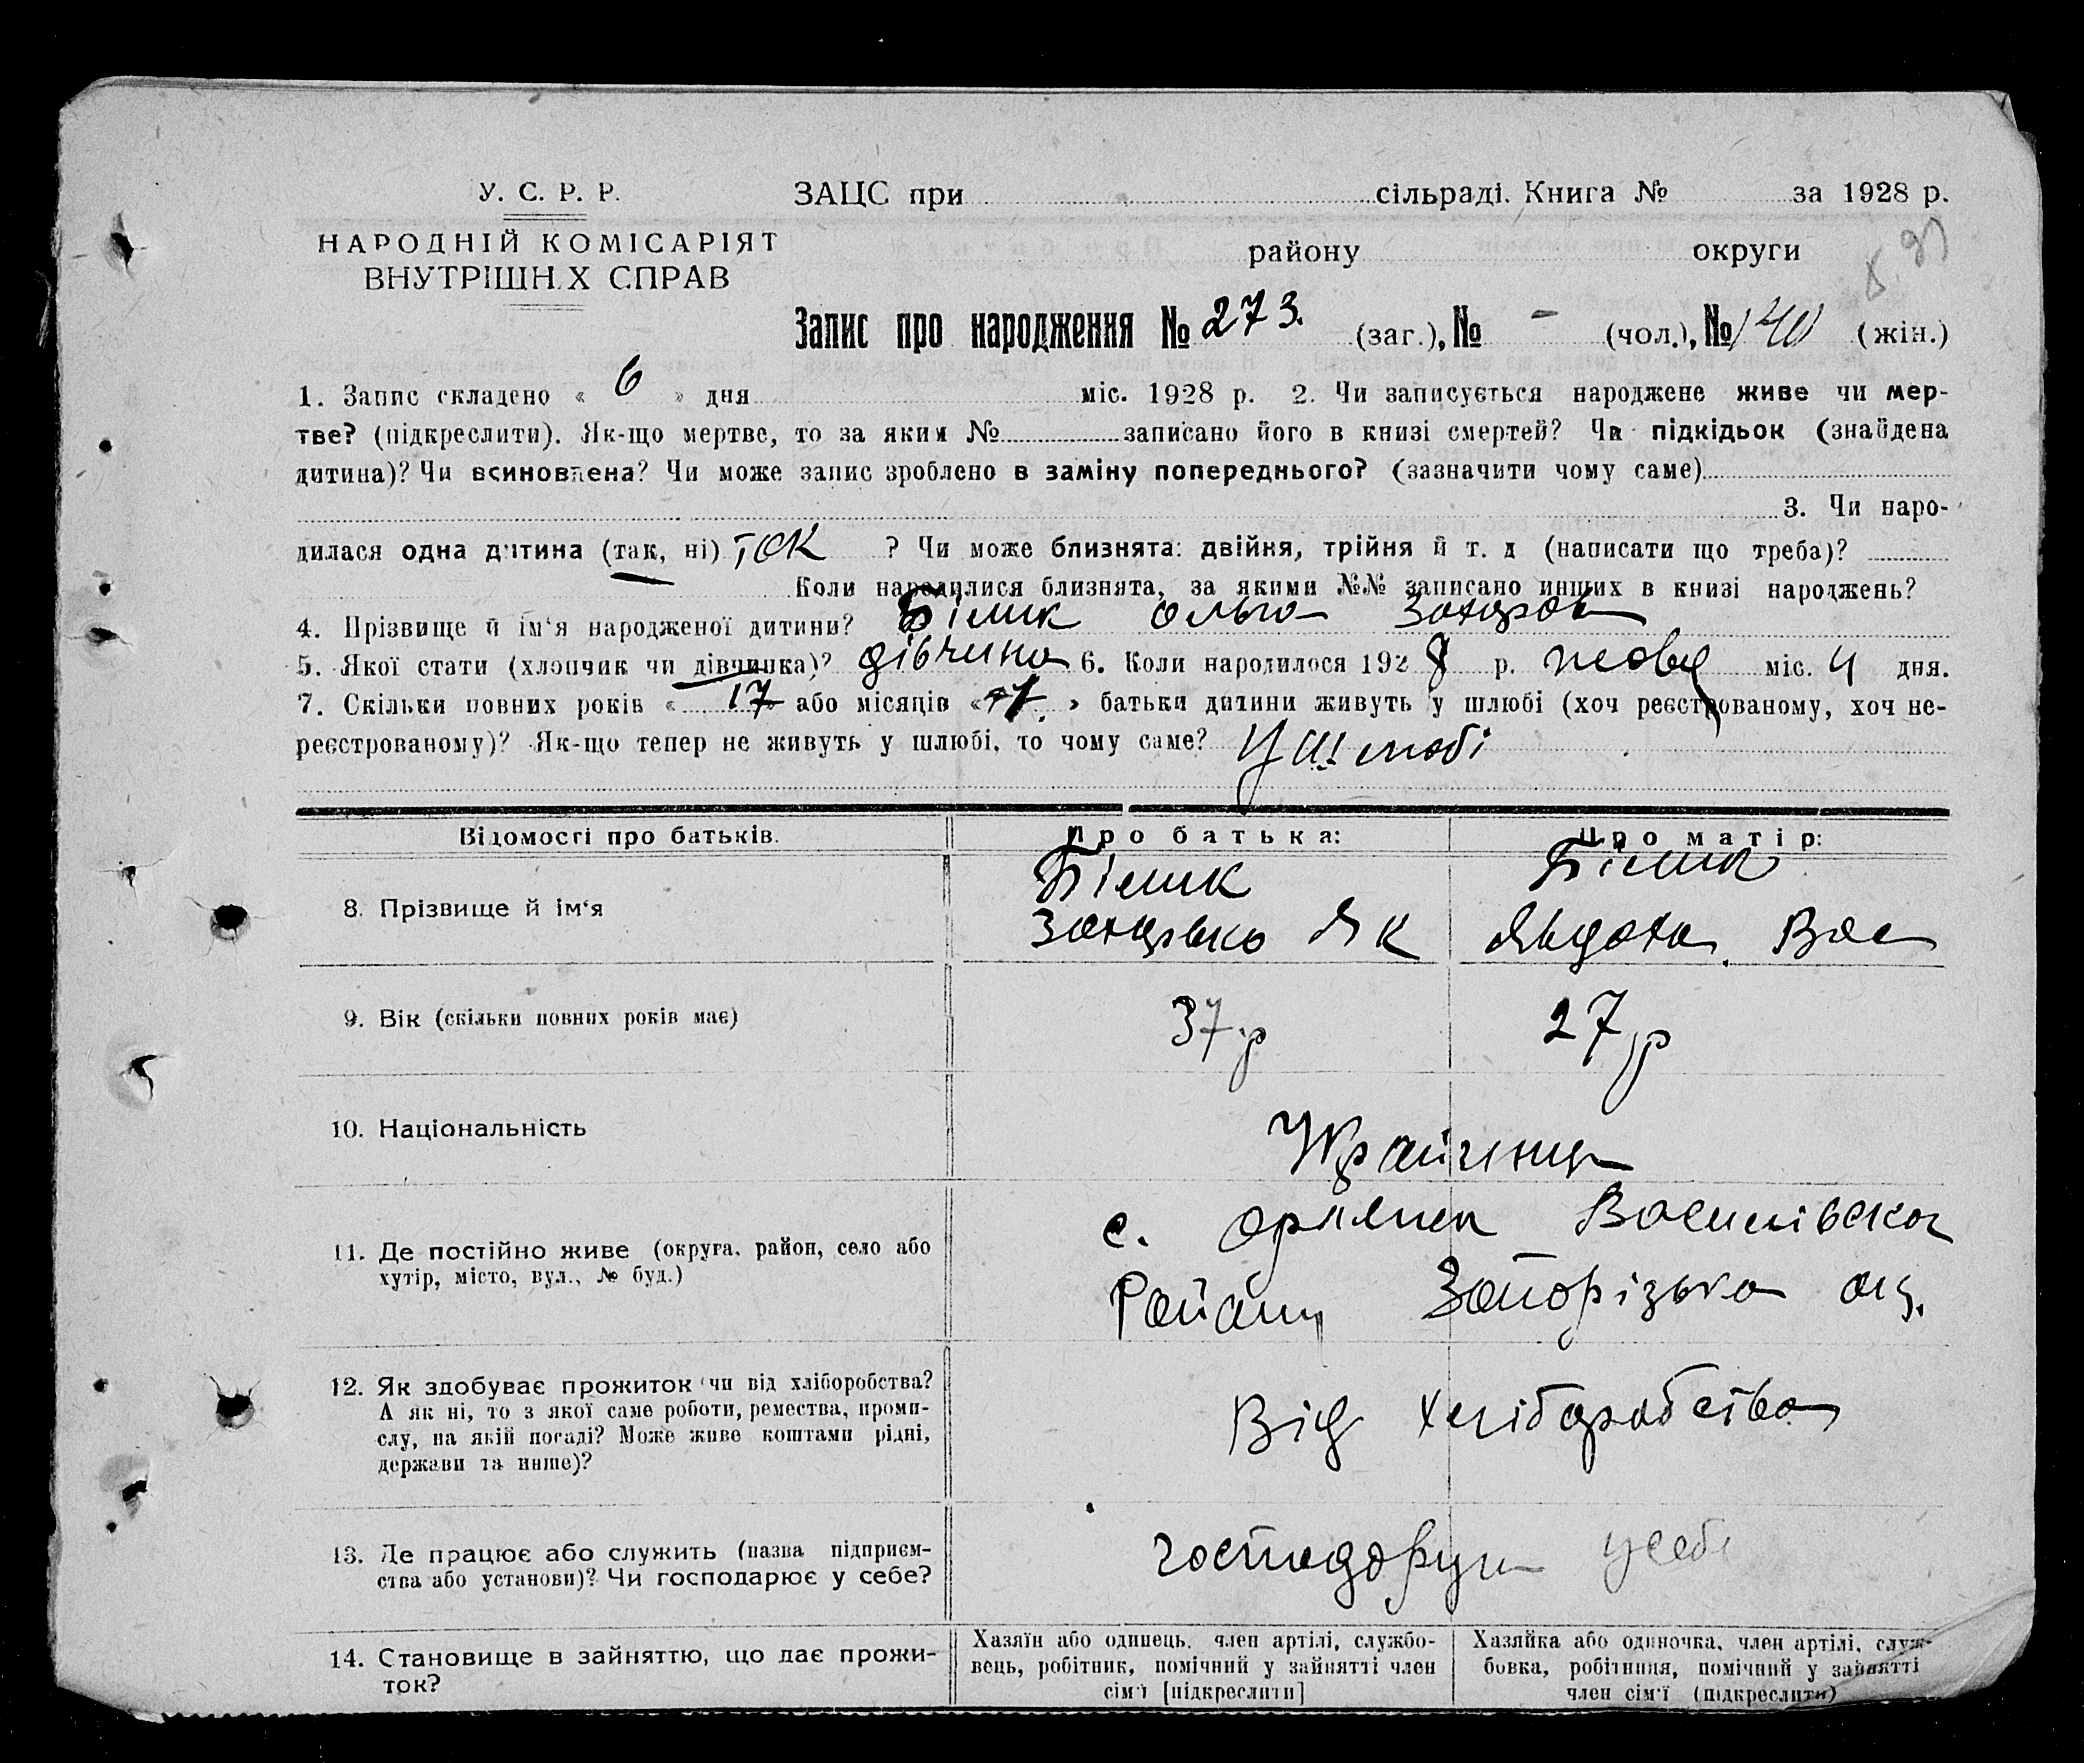 У. С. Р. Р.
НАРОДНІЙ КОМІСАРІЯТ
ВНУТРІШН.Х СПРАВ
ЗАЦС при сільраді. Книга № за 1928 р.
району округи
Запис про народження № 273. (заг.), № - (чол.), № 140 (жін.)
1. Запис складено « 6 » дня міс. 1928 р. 2. Чи записується народжене живе чи мер-
тве? (підкреслити). Як-що мертве, то за яким № записано його в книзі смертей? Чи підкідьок (знайдена
дитина)? Чи всиновлена? Чи може запис зроблено в заміну попереднього? (зазначити чому саме)
3. Чи наро-
дилася одна дитина (так, ні) так ? Чи може близнята: двійня, трійня й т. д (написати що треба)?
Коли народилися близнята, за якими №№ записано инших в книзі народжень?
4. Прізвище й ім‘я народженої дитини? Білик Ольга Захаров
5. Якої стати (хлопчик чи дівчинка)? дівчина 6. Коли народилося 1928 р. міс. 4 дня.
7. Скільки повних років « 17 » або місяців « » батьки дитини живуть у шлюбі (хоч реєстрованому, хоч не-
реєстрованому)? Як-що тепер не живуть у шлюбі, то чому саме? У шлюбі
Відомості про батьків. Про батька: Про матір:
8. Прізвище й ім‘я
Білик
Захарько Як
Білик
Явдоха Вас
9. Вік (скільки повних років має) 37 р 27 р
10. Національність Українци
11. Де постійно живе (округа, район, село або
хутір, місто, вул., № буд.)
с. Василівська
Району Запорізька ок.
12. Як здобуває прожиток чи від хліборобства?
А як ні, то з якої саме роботи, ремества, проми-
слу, на якій посаді? Може живе коштами рідні,
держави та инше)?
Від хліборобства
13. Де працює або служить (назва підприєм-
ства або установи)? Чи господарює у себе?
господорують у себе
14. Становище в зайняттю, що дає прожи-
ток?
Хазяїн або одинець, член артілі, службо-
вець, робітник, помічний у зайнятті член
сім‘ї [підкреслити]
Хазяйка або одиночка, член артілі, служ-
бовка, робітниця, помічний у зайнятті
член сім‘ї (підкреслити)